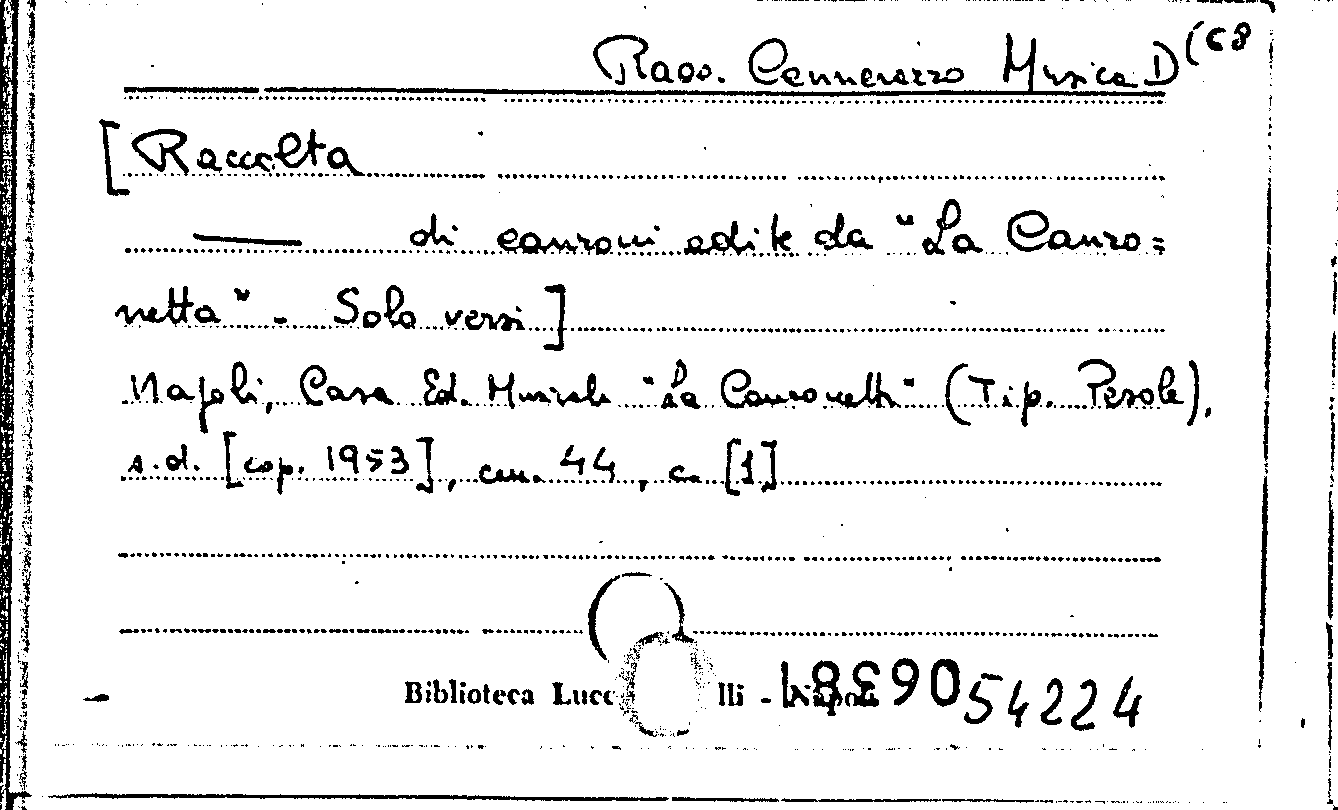 Racc. Cennerazzo Musica D (68
[Raccolta
— di canzoni edite da "La Canzo=
netta" - Solo versi]
Napoli, Casa Ed. Musicale "La Canzonetta" (Tip. Pesole),
s.d. [cop. 1953], cm. 44, c. [1]
Biblioteca Lucc lli - Napoli 054224